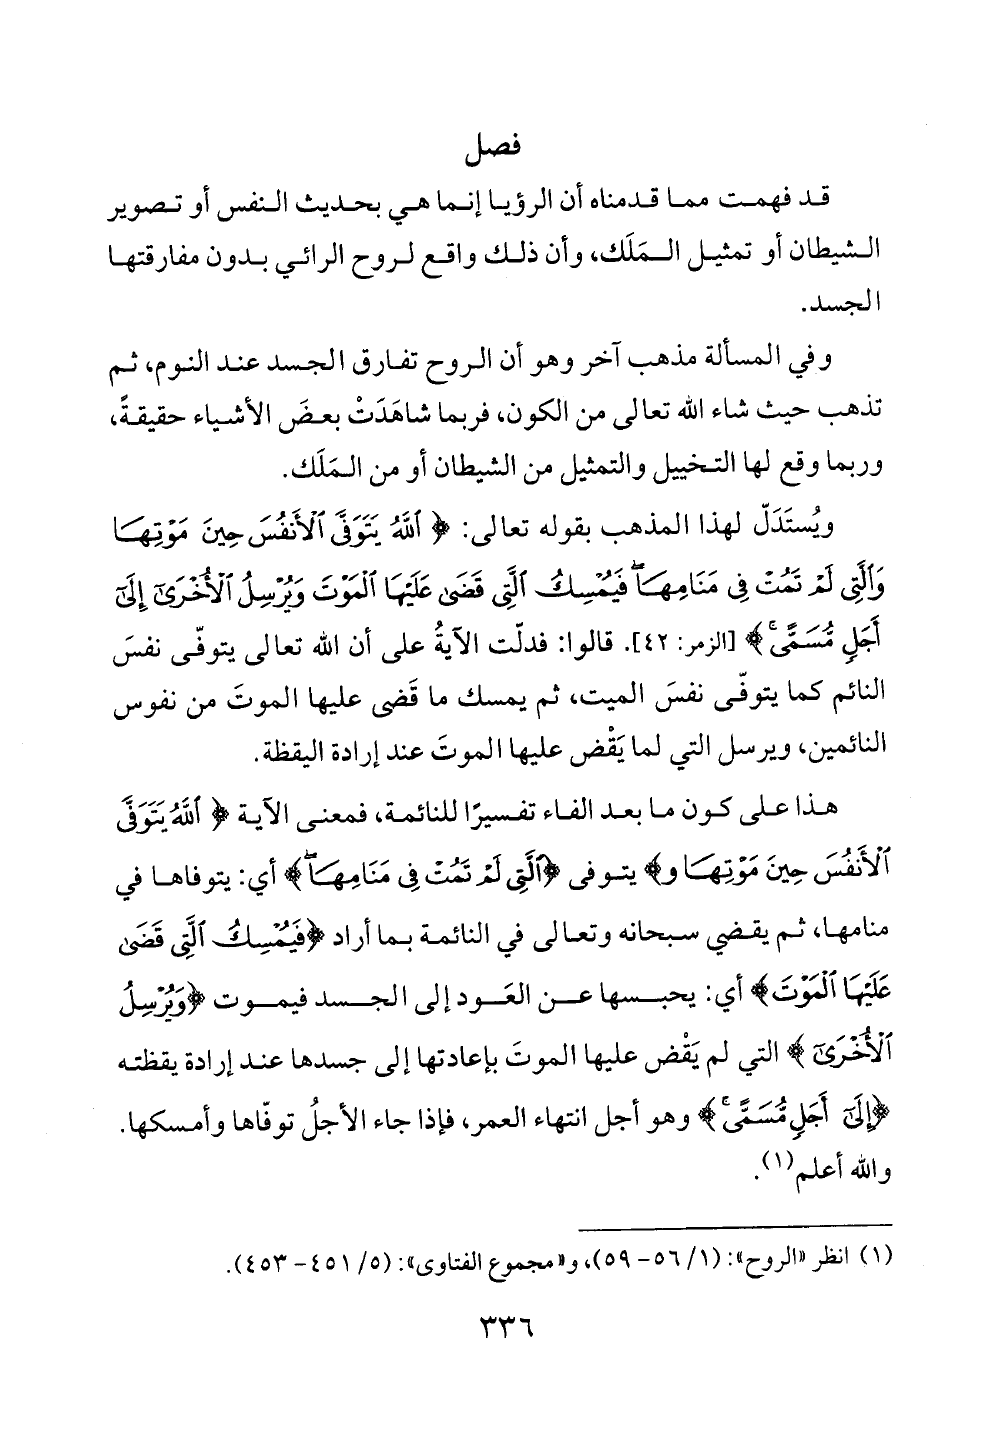 فصل
قد فهمت مما قدمناه أن الرؤيا إنما هي بحديث النفس أو تصوير
الشيطان أو تمثيل المَلَك، وأن ذلك واقع لروح الرائي بدون مفارقتها
الجسد.
وفي المسألة مذهب آخر وهو أن الروح تفارق الجسد عند النوم، ثم
تذهب حيث شاء الله تعالى من الكون، فربما شاهَدَتْ بعضَ الأشياء حقيقةً،
وربما وقع لها التخييل والتمثيل من الشيطان أو من المَلَك.
ويُستَدَلّ لهذا المذهب بقوله تعالى: ﴿ ٱللَّهُ يَتَوَفَّى ٱلْأَنفُسَ حِينَ مَوْتِهَا
وَٱلَّتِى لَمْ تَمُتْ فِى مَنَامِهَا ۖ فَيُمْسِكُ ٱلَّتِى قَضَىٰ عَلَيْهَا ٱلْمَوْتَ وَيُرْسِلُ ٱلْأُخْرَىٰٓ إِلَىٰٓ
أَجَلٍ مُّسَمًّى ۚ﴾ [الزمر: ٤٢]. قالوا: فدلّت الآيةُ على أن الله تعالى يتوفّى نفسَ
النائم كما يتوفّى نفسَ الميت، ثم يمسك ما قَضى عليها الموتَ من نفوس
النائمين، ويرسل التي لما يَقْض عليها الموتَ عند إرادة اليقظة.
هذا على كون ما بعد الفاء تفسيرًا للنائمة، فمعنى الآية ﴿ ٱللَّهُ يَتَوَفَّى
ٱلْأَنفُسَ حِينَ مَوْتِهَا و﴾ يتوفى ﴿ٱلَّتِى لَمْ تَمُتْ فِى مَنَامِهَا ۖ﴾ أي: يتوفاها في
منامها، ثم يقضي سبحانه وتعالى في النائمة بما أراد ﴿فَيُمْسِكُ ٱلَّتِى قَضَىٰ
عَلَيْهَا ٱلْمَوْتَ﴾ أي: يحبسها عن العَود إلى الجسد فيموت ﴿وَيُرْسِلُ
ٱلْأُخْرَىٰٓ ﴾ التي لم يَقْض عليها الموتَ بإعادتها إلى جسدها عند إرادة يقظته
﴿إِلَىٰٓ أَجَلٍ مُّسَمًّى ۚ﴾ وهو أجل انتهاء العمر، فإذا جاء الأجلُ توفّاها وأمسكها.
والله أعلم(١).
(١) انظر «الروح»: (١/ ٥٦ – ٥٩)، و«مجموع الفتاوى»: (٥/ ٤٥١ – ٤٥٣).
٣٣٦